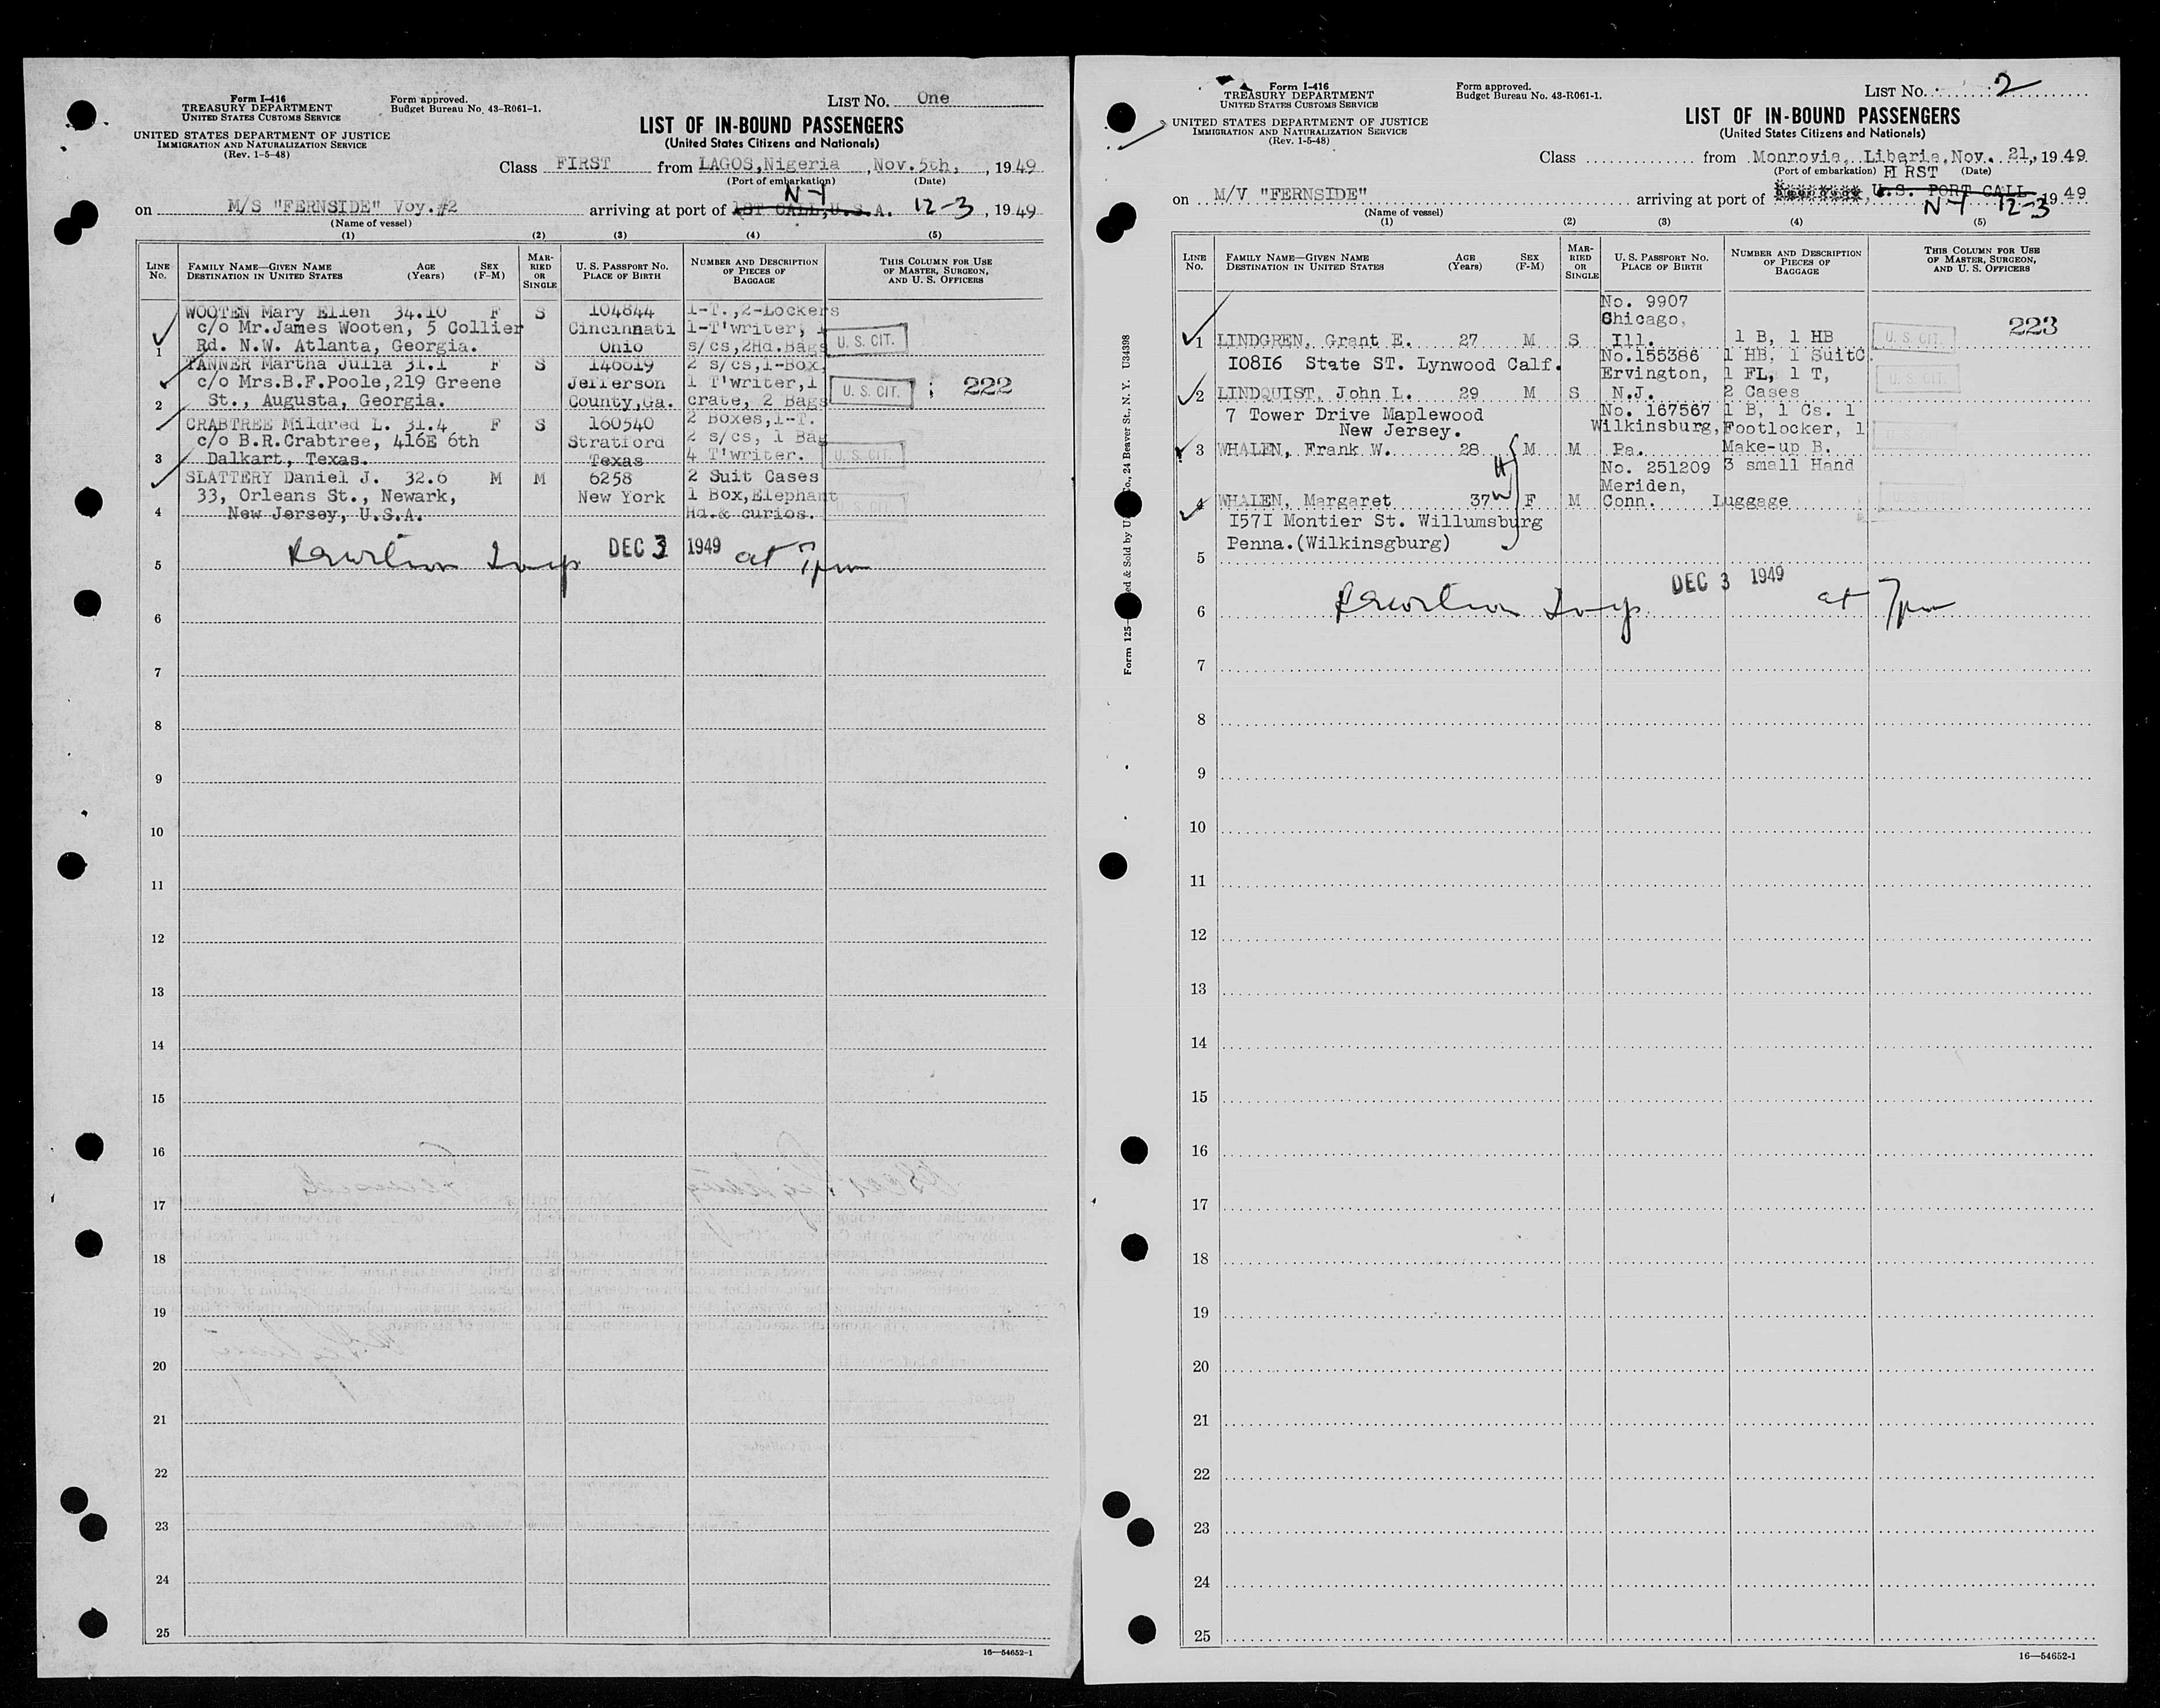 Form I-416
TREASURY DEPARTMENT
UNITED STATES CUSTOMS SERVICE
UNITED STATES DEPARTMENT OF JUSTICE
IMMIGRATION AND NATURALIZATION SERVICE
(Rev. 1-5-48)
Form approved.
Budget Bureau No. 43-R061-1.
LIST No. One
LIST OF IN-BOUND PASSENGERS
(United States Citizens and Nationals)
Class FIRST from LAGOS, Nigeria, Nov. 5th, 1949
(Port of embarkation) (Date)
N-Y
on M/S "FERNSIDE" Voy.#2 arriving at port of 1ST CALL, U.S.A. 12-3, 1949
(Name of vessel)
(1) (2) (3) (4) (5)
LINE No. FAMILY NAME—GIVEN NAME DESTINATION IN UNITED STATES AGE (Years) SEX (F-M) MARRIED OR SINGLE U. S. PASSPORT NO. PLACE OF BIRTH NUMBER AND DESCRIPTION OF PIECES OF BAGGAGE THIS COLUMN FOR USE OF MASTER, SURGEON, AND U. S. OFFICERS
WOOTEN Mary Ellen 34.10 F S 104844 1-T.,2-Lockers
c/o Mr.James Wooten, 5 Collier Cincinnati 1-T'writer, 1
1 Rd. N.W. Atlanta, Georgia. Ohio s/cs,2Hd.Bags U. S. CIT.
TANNER Martha Julia 31.1 F S 146619 2 s/cs,1-Box,
c/o Mrs.B.F.Poole,219 Greene Jefferson 1 T'writer,1 U. S. CIT. 222
2 St., Augusta, Georgia. County,Ga. crate, 2 Bags
CRABTREE Mildred L. 31.4 F S 160540 2 Boxes,1-T.
c/o B.R.Crabtree, 416E 6th Stratford 2 s/cs, 1 Bag
3 Dalkart, Texas. Texas 4 T'writer. U. S. CIT.
SLATTERY Daniel J. 32.6 M M 6258 2 Suit Cases
33, Orleans St., Newark, New York 1 Box,Elephant
4 New Jersey, U.S.A. Hd.& curios. U. S. CIT.
DEC 3 1949 at 7pm
5
6
7
8
9
10
11
12
13
14
15
16
17
18
19
20
21
22
23
24
25
16—54652-1
Form I-416
TREASURY DEPARTMENT
UNITED STATES CUSTOMS SERVICE
UNITED STATES DEPARTMENT OF JUSTICE
IMMIGRATION AND NATURALIZATION SERVICE
(Rev. 1-5-48)
Form approved.
Budget Bureau No. 43-R061-1.
LIST No. 2
LIST OF IN-BOUND PASSENGERS
(United States Citizens and Nationals)
Class from Monrovia, Liberia, Nov. 21, 1949
(Port of embarkation) FIRST (Date)
on M/V "FERNSIDE" arriving at port of U.S. PORT CALL 1949
N-Y 12-3
(Name of vessel)
(1) (2) (3) (4) (5)
LINE No. FAMILY NAME—GIVEN NAME DESTINATION IN UNITED STATES AGE (Years) SEX (F-M) MARRIED OR SINGLE U. S. PASSPORT NO. PLACE OF BIRTH NUMBER AND DESCRIPTION OF PIECES OF BAGGAGE THIS COLUMN FOR USE OF MASTER, SURGEON, AND U. S. OFFICERS
No. 9907
Chicago, 223
1 LINDGREN, Grant E. 27 M S Ill. 1 B, 1 HB U. S. CIT.
No.155386 1 HB, 1 SuitC.
10816 State ST. Lynwood Calf. Ervington, 1 FL, 1 T, U. S. CIT.
2 LINDQUIST, John L. 29 M S N.J. 2 Cases
7 Tower Drive Maplewood No. 167567 1 B, 1 Cs. 1
New Jersey. Wilkinsburg, Footlocker, 1
3 WHALEN, Frank W. 28 M M Pa. Make-up B.
H No. 251209 3 small Hand
W Meriden,
4 WHALEN, Margaret 37 F M Conn. Luggage
1571 Montier St. Willumsburg
Penna.(Wilkinsgburg)
5
DEC 3 1949
6 at 7pm
7
8
9
10
11
12
13
14
15
16
17
18
19
20
21
22
23
24
25
16—54652-1
24 Beaver St., N. Y. U34398